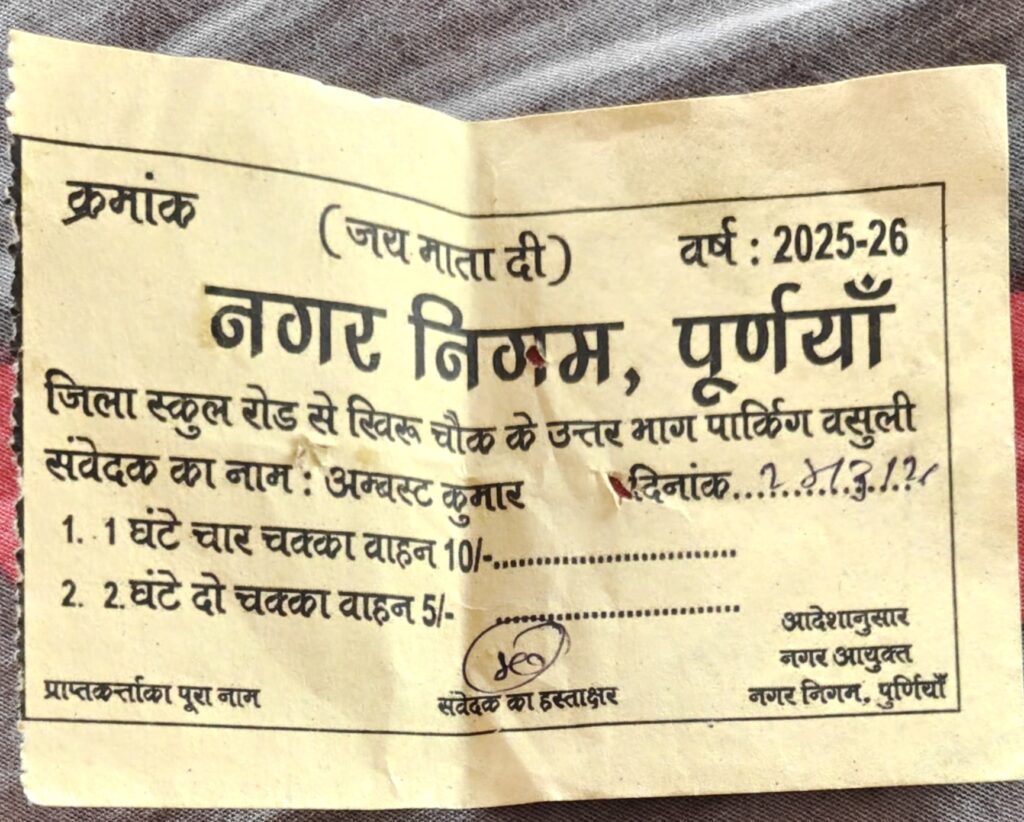 क्रमांक
(जय माता दी)
वर्ष : 2025-26
नगर निगम, पूर्णयाँ
जिला स्कुल रोड से खिरू चौक के उत्तर भाग पार्किग वसुली
संवेदक का नाम : अम्बस्ट कुमार दिनांक
1. 1 घंटे चार चक्का वाहन 10/-..............................
2. 2.घंटे दो चक्का वाहन 5/- ..............................
आदेशानुसार
नगर आयुक्त
प्राप्तकर्त्ताका पूरा नाम संवेदक का हस्ताक्षर नगर निगम, पुर्णियाँ